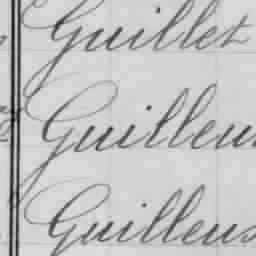 Guillet
Guilleu
Guilleus